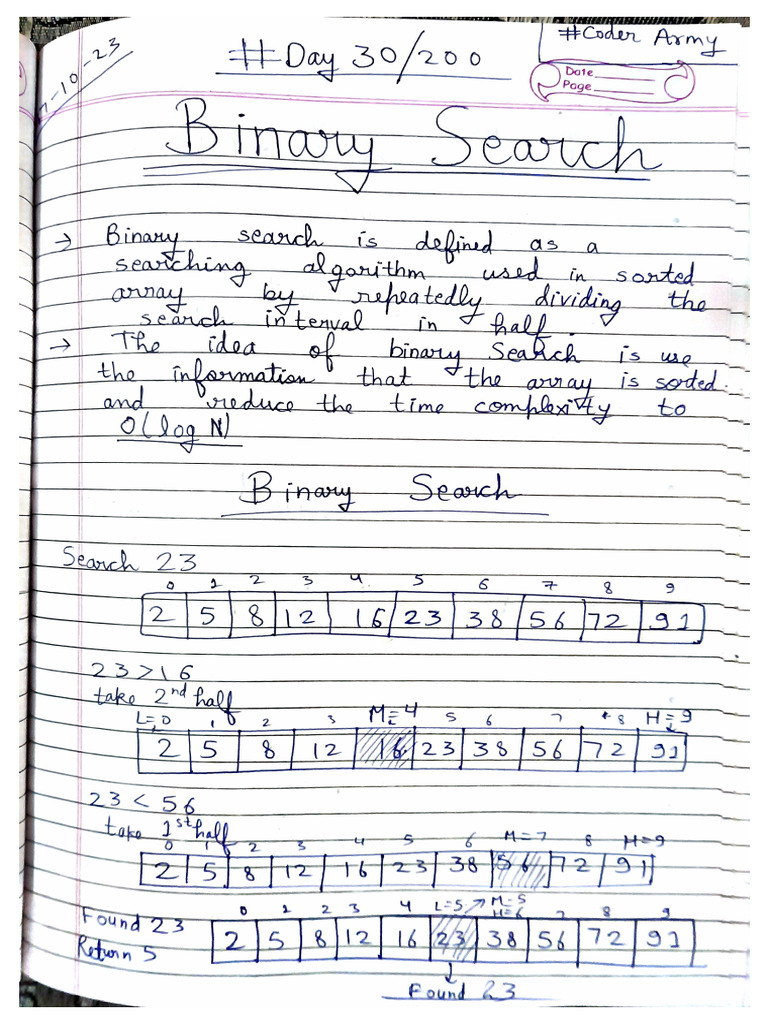 -10-23
#Day 30/200
#Coder Army
Date
Page
Binary Search
→ Binary search is defined as a
searching algorithm used in sorted
array by repeatedly dividing the
search interval in half.
→ The idea of binary Search is use
the information that the array is sorted.
and reduce the time complexity to
O(log N)
Binary Search
Search 23
0 1 2 3 4 5 6 7 8 9
2 5 8 12 16 23 38 56 72 91
23>16
take 2nd half
L=0 1 2 3 M=4 5 6 7 8 H=9
2 5 8 12 16 23 38 56 72 91
23 < 56
take 1st half
0 1 2 3 4 5 6 M=7 8 H=9
2 5 8 12 16 23 38 56 72 91
0 1 2 3 4 L=5 → M=5 H=6 7 8 9
Found 23
Return 5
2 5 8 12 16 23 38 56 72 91
↓
Found 23